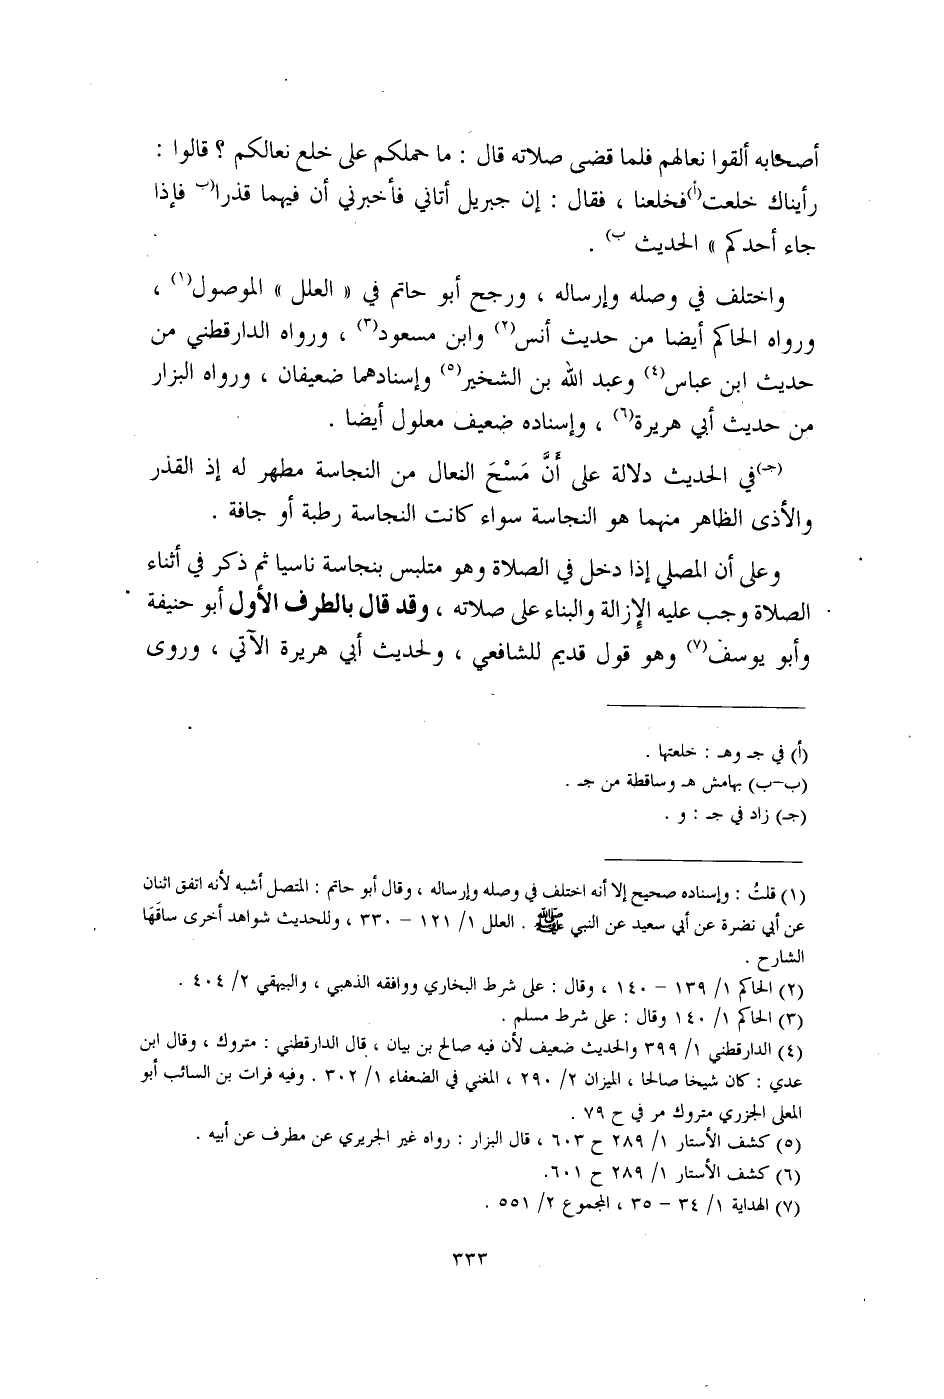 أصحابه ألقوا نعالهم فلما قضى صلاته قال : ما حملكم على خلع نعالكم ؟ قالوا :
رأيناك خلعت(أ)فخلعنا ، فقال : إن جبريل أتاني فأخبرني أن فيهما قذرا(ب فإذا
جاء أحدكم » الحديث ب) .
واختلف في وصله وإرساله ، ورجح أبو حاتم في « العلل » الموصول(١) ،
ورواه الحاكم أيضا من حديث أنس(٢) وابن مسعود(٣) ، ورواه الدارقطني من
حديث ابن عباس(٤) وعبد الله بن الشخير(٥) وإسنادهما ضعيفان ، ورواه البزار
من حديث أبي هريرة(٦) ، وإسناده ضعيف معلول أيضا .
(جـ)في الحديث دلالة على أَنَّ مَسْحَ النعال من النجاسة مطهر له إذ القذر
والأذى الظاهر منهما هو النجاسة سواء كانت النجاسة رطبة أو جافة .
وعلى أن المصلي إذا دخل في الصلاة وهو متلبس بنجاسة ناسيا ثم ذكر في أثناء
الصلاة وجب عليه الإزالة والبناء على صلاته ، وقد قال بالطرف الأول أبو حنيفة
وأبو يوسف(٧) وهو قول قديم للشافعي ، ولحديث أبي هريرة الآتي ، وروى
(أ) في جـ وهـ : خلعتها .
(ب-ب) بهامش هـ وساقطة من جـ .
(جـ) زاد في جـ : و .
(١) قلتُ : وإسناده صحيح إلا أنه اختلف في وصله وإرساله ، وقال أبو حاتم : المتصل أشبه لأنه اتفق اثنان
عن أبي نضرة عن أبي سعيد عن النبي ﷺ . العلل ١/ ١٢١ - ٣٣٠ ، وللحديث شواهد أخرى ساقَهَا
الشارح .
(٢) الحاكم ١/ ١٣٩ - ١٤٠ ، وقال : على شرط البخاري ووافقه الذهبي ، والبيهقي ٢/ ٤٠٤ .
(٣) الحاكم ١/ ١٤٠ وقال : على شرط مسلم .
(٤) الدارقطني ١/ ٣٩٩ والحديث ضعيف لأن فيه صالح بن بيان ، قال الدارقطني : متروك ، وقال ابن
عدي : كان شيخا صالحا ، الميزان ٢/ ٢٩٠ ، المغني في الضعفاء ١/ ٣٠٢ . وفيه فرات بن السائب أبو
المعلى الجزري متروك مر في ح ٧٩ .
(٥) كشف الأستار ١/ ٢٨٩ ح ٦٠٣ ، قال البزار : رواه غير الجريري عن مطرف عن أبيه .
(٦) كشف الأستار ١/ ٢٨٩ ح ٦٠١.
(٧) الهداية ١/ ٣٤ - ٣٥ ، المجموع ٢/ ٥٥١ .
٣٣٣